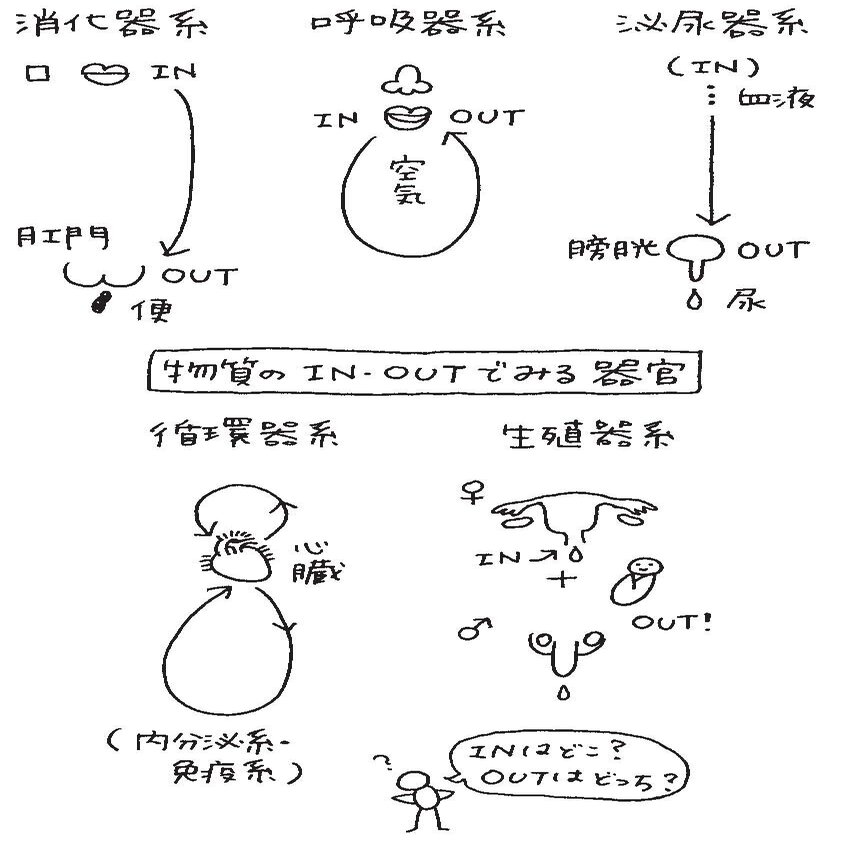 消化器系
口 IN
肛門
OUT
便
呼吸器系
IN OUT
空気
泌尿器系
(IN)
血液
膀胱 OUT
尿
物質のIN-OUTでみる器官
循環器系
心臓
(内分泌系・
免疫系)
生殖器系
♀
IN→
+
OUT!
♂
?
INはどこ?
OUTはどっち?